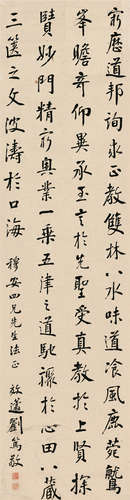 窮歷道邦詢求正教雙林八水味道餐風鹿苑鷲
峯瞻奇仰異承至言於先聖受真教於上賢探
賾妙門精窮奥業一乘五律之道馳驟於心田八藏
三篋之文波濤於口海
穆安四兄先生法正
放園劉篤敬